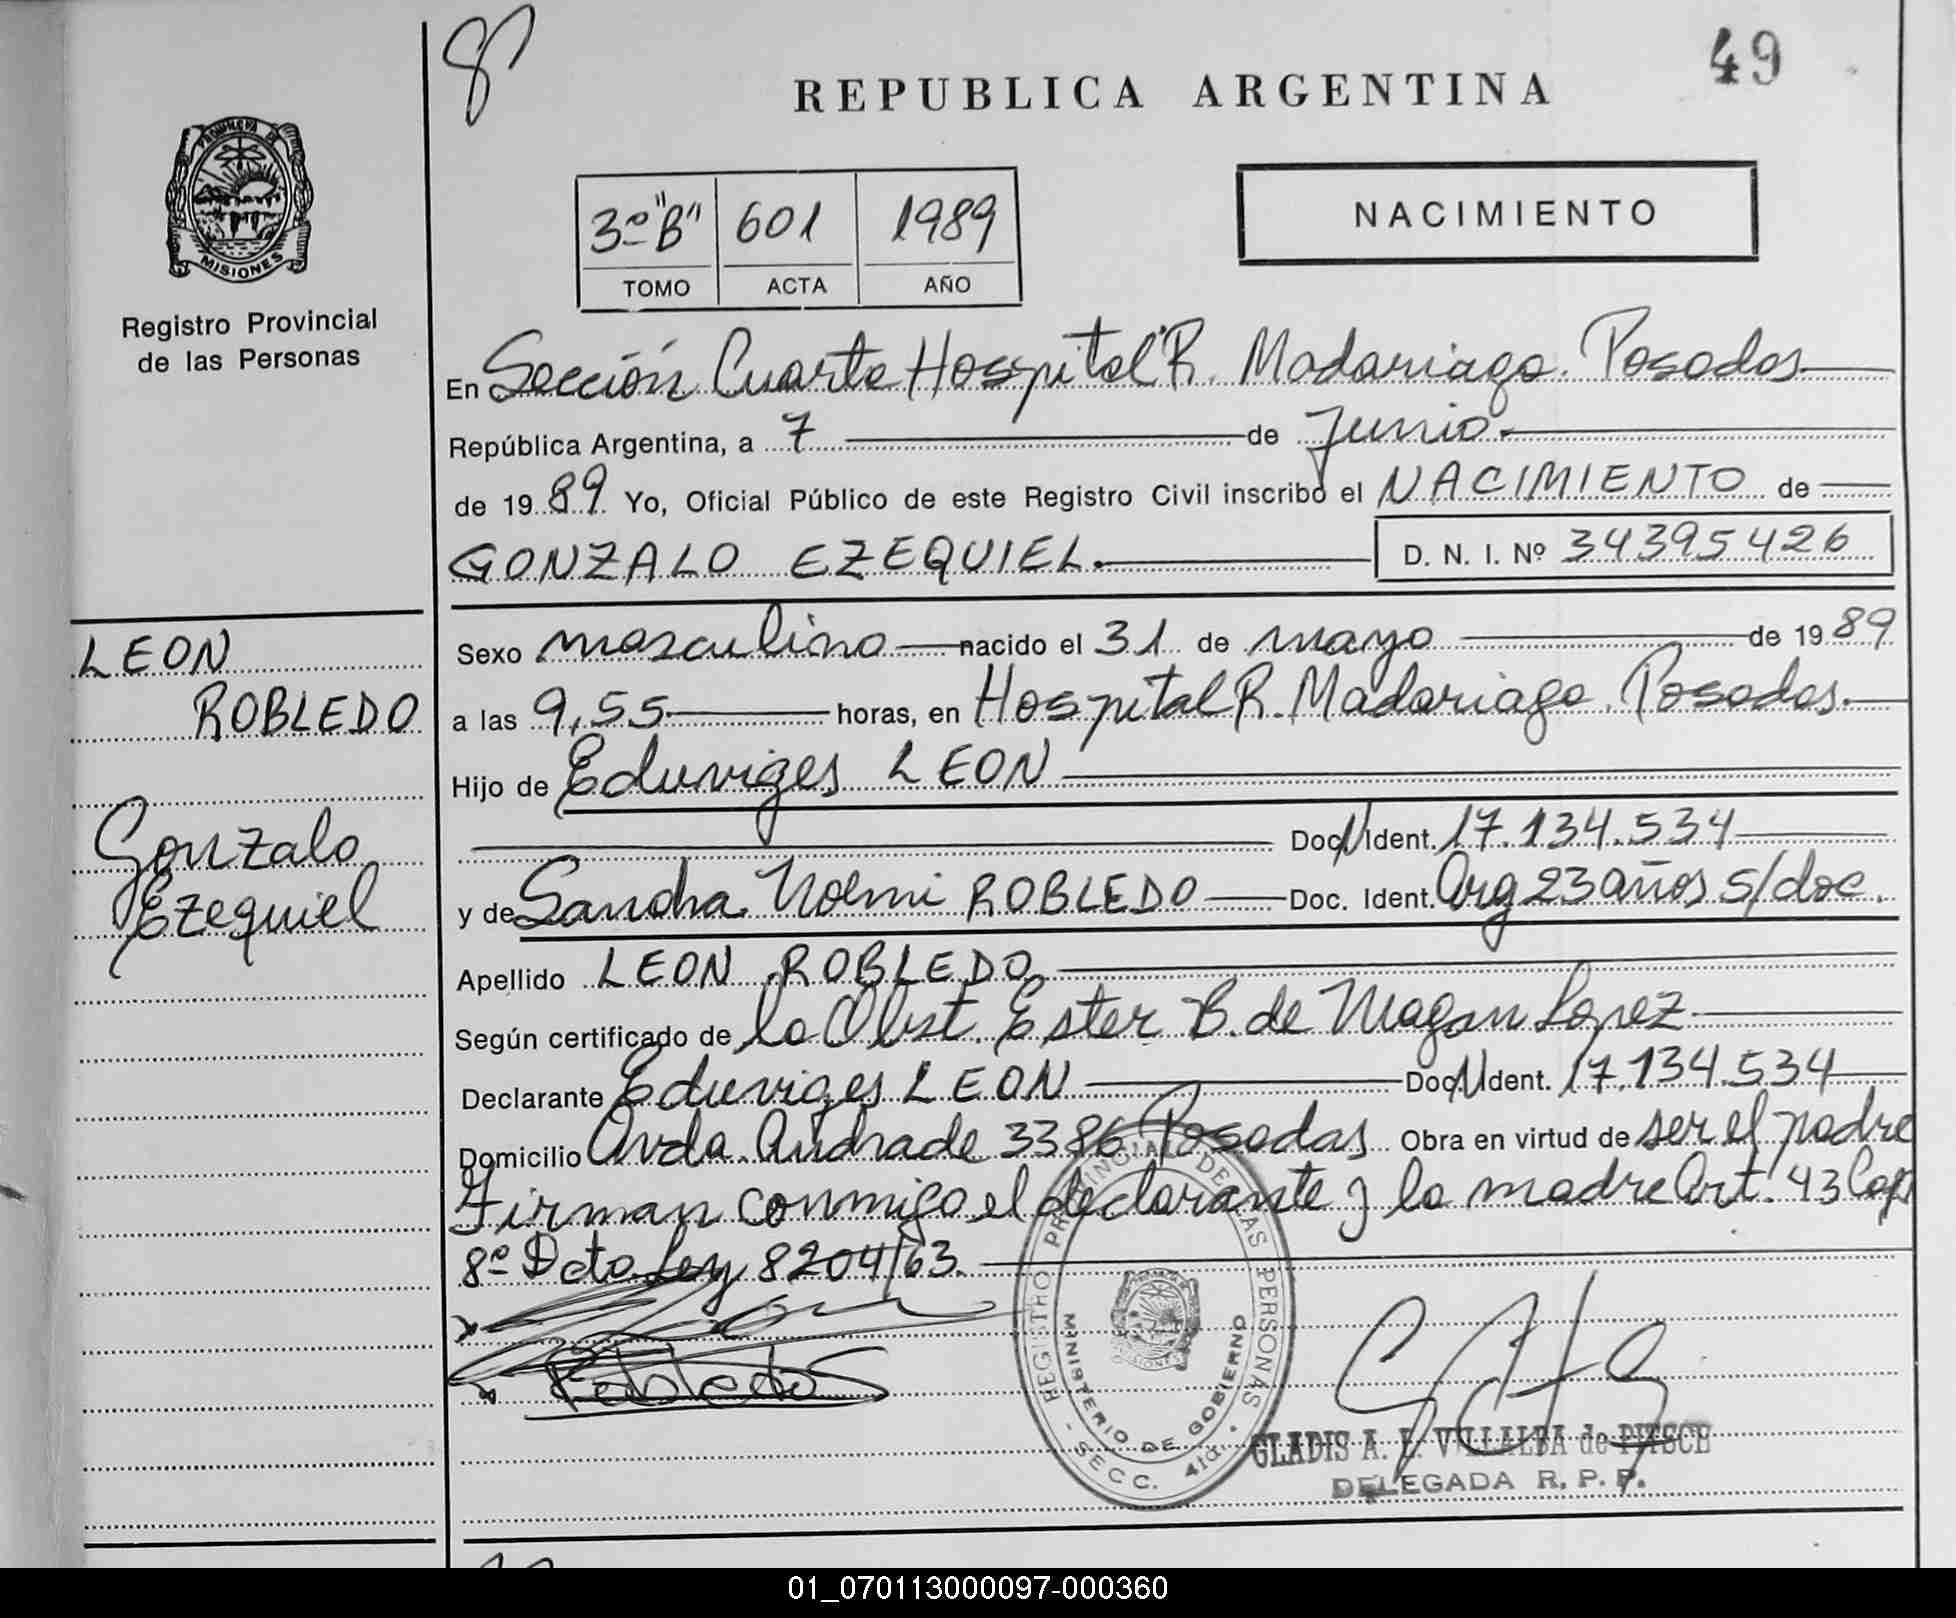 87
49
REPUBLICA ARGENTINA
PROVINCIA DE
MISIONES
Registro Provincial
de las Personas
3º "B" 601 1989
TOMO ACTA AÑO
NACIMIENTO
En Sección Cuarta Hospital R. Madariaga. Posadas
República Argentina, a 7 de Junio.
de 1989 Yo, Oficial Público de este Registro Civil inscribo el NACIMIENTO de
GONZALO EZEQUIEL. D. N. I. Nº 34395426
LEON
ROBLEDO
Gonzalo
Ezequiel
Sexo masculino nacido el 31 de mayo de 1989
a las 9,55 horas, en Hospital R. Madariaga. Posadas.
Hijo de Eduviges LEON
Doc N Ident. 17.134.534
y de Sandra Noemi ROBLEDO Doc. Ident. Arg 23 años s/doc.
Apellido LEON ROBLEDO
Según certificado de la Obst. Ester B. de Magan Lopez
Declarante Eduviges LEON Doc N Ident. 17.134.534
Domicilio Avda. Andrade 3386 Posadas Obra en virtud de ser el padre
Firman conmigo el declarante y la madre Art. 43 Cap
8º Dcto. Ley 8204/63.
Robledo S
REGISTRO PROVINCIAL DE LAS PERSONAS
MINISTERIO DE GOBIERNO
MISIONES
- SECC. 4ta. -
GLADIS A. VILLALBA de
DELEGADA R. P. P.
01_070113000097-000360